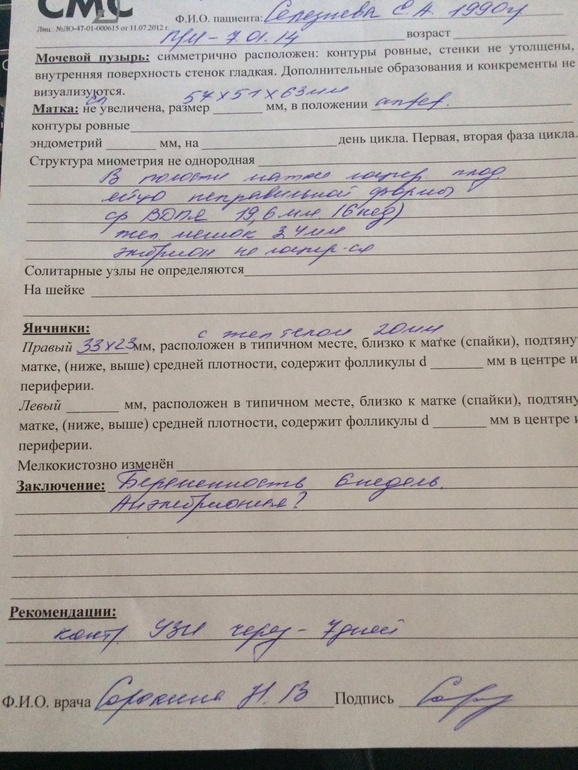 СМС
Лиц. №ЛО-47-01-000615 от 11.07.2012 г.
Ф.И.О. пациента: Селезнева С А. 1990г
ПМ - 7.01.14 возраст
Мочевой пузырь: симметрично расположен: контуры ровные, стенки не утолщены,
внутренняя поверхность стенок гладкая. Дополнительные образования и конкременты не
визуализируются.
Матка: не увеличена, размер 57х51х63мм мм, в положении
контуры ровные
эндометрий мм, на день цикла. Первая, вторая фаза цикла.
Структура миометрия не однородная
В полости матки лоцир плод.
яйцо неправильной формы
ср ВДПЯ 19,6мм (6нед)
жел мешок 3,4мм
эмбрион не лоцир-ся
Солитарные узлы не определяются
На шейке
Яичники:
с жел телом 20мм
Правый 33х23мм, расположен в типичном месте, близко к матке (спайки), подтяну
матке, (ниже, выше) средней плотности, содержит фолликулы d мм в центре и
периферии.
Левый мм, расположен в типичном месте, близко к матке (спайки), подтяну
матке, (ниже, выше) средней плотности, содержит фолликулы d мм в центре и
периферии.
Мелкокистозно изменён
Заключение: Беременность 6недель.
Анэмбриония?
Рекомендации:
контр. УЗИ через - 7дней
Ф.И.О. врача Сорокина Н. В Подпись